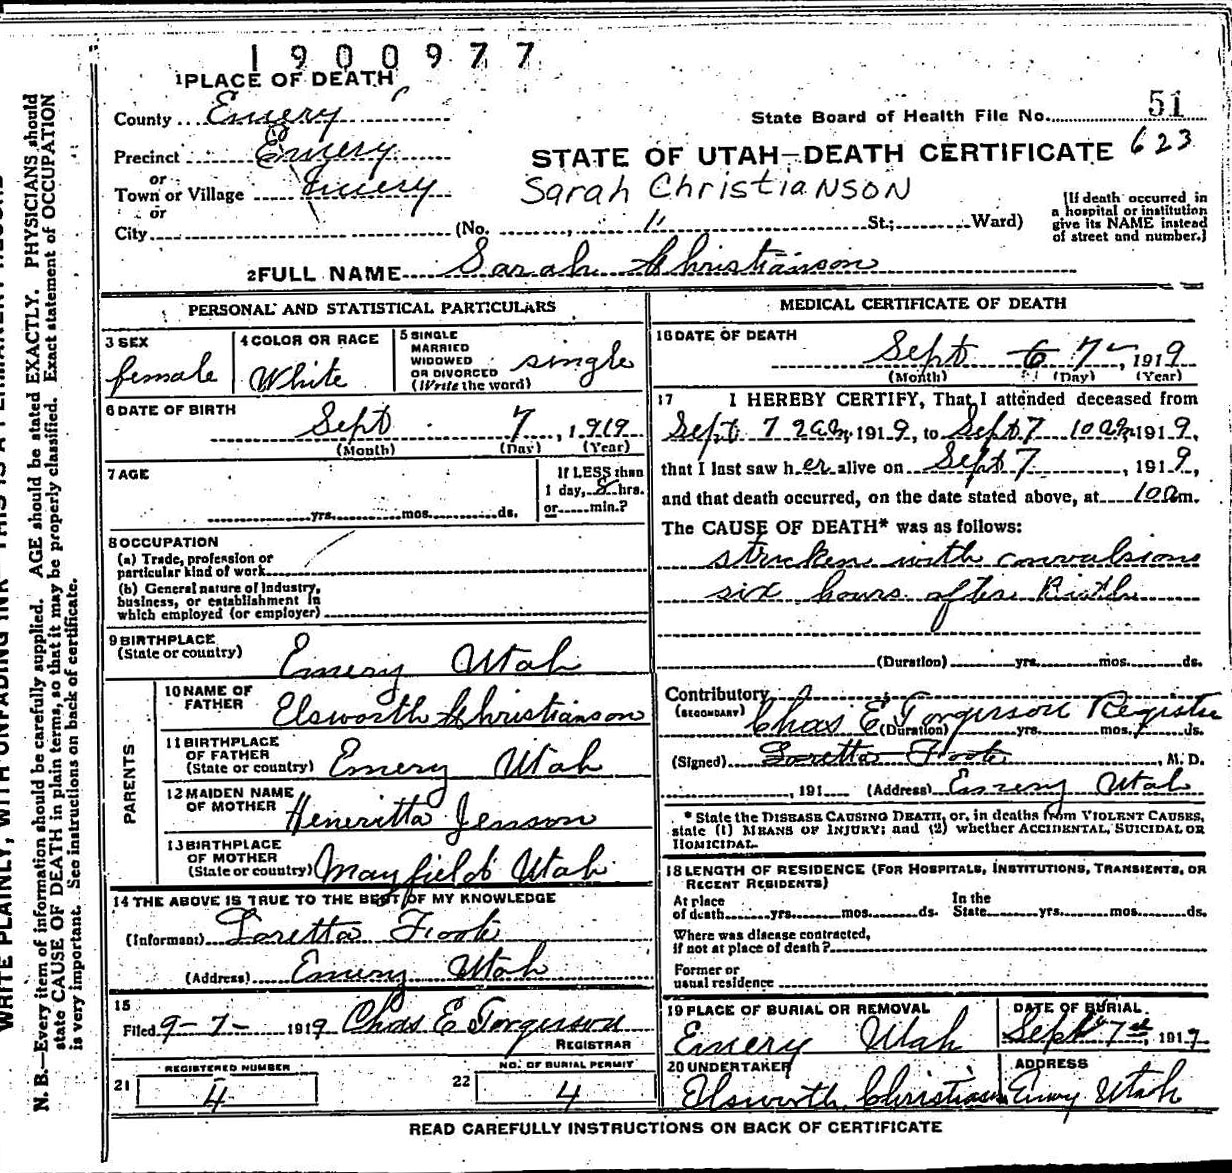 1900977
1 PLACE OF DEATH
County Emery
State Board of Health File No. 51
Precinct Emery
STATE OF UTAH—DEATH CERTIFICATE 623
or
Town or Village Emery
Sarah ChristiaNSON
or
City (No. , " St.; Ward)
[If death occurred in
a hospital or institution
give its NAME instead
of street and number.]
2 FULL NAME Sarah Christianson
PERSONAL AND STATISTICAL PARTICULARS
3 SEX
female
4 COLOR OR RACE
White
5 SINGLE
MARRIED
WIDOWED
OR DIVORCED
(Write the word)
single
6 DATE OF BIRTH
Sept 7, 1919
(Month) (Day) (Year)
7 AGE
yrs. mos. ds.
If LESS than
1 day, 8 hrs.
or min.?
8 OCCUPATION
(a) Trade, profession or
particular kind of work
(b) General nature of industry,
business, or establishment in
which employed (or employer)
9 BIRTHPLACE
(State or country)
Emery Utah
PARENTS
10 NAME OF
FATHER
Elsworth Christianson
11 BIRTHPLACE
OF FATHER
(State or country) Emery Utah
12 MAIDEN NAME
OF MOTHER
Heneritta Jenson
13 BIRTHPLACE
OF MOTHER
(State or country) Mayfield Utah
14 THE ABOVE IS TRUE TO THE BEST OF MY KNOWLEDGE
(Informant) Loretta Foote
(Address) Emery Utah
15
Filed 9-7- 1919 Chas E Torgerson
REGISTRAR
21 REGISTERED NUMBER
4
22 NO. OF BURIAL PERMIT
4
MEDICAL CERTIFICATE OF DEATH
16 DATE OF DEATH
Sept 6 7-, 1919
(Month) (Day) (Year)
17 I HEREBY CERTIFY, That I attended deceased from
Sept 7 2am, 1919, to Sept 7 10am 1919,
that I last saw her alive on Sept 7, 1919,
and that death occurred, on the date stated above, at 10am.
The CAUSE OF DEATH* was as follows:
stricken with convulsions
six hours after Birth
(Duration) yrs. mos. ds.
Contributory
(SECONDARY)
Chas E Torgerson Register
(Duration) yrs. mos. ds.
(Signed) Loretta Foote, M. D.
, 191 (Address) Emery Utah
* State the DISEASE CAUSING DEATH, or, in deaths from VIOLENT CAUSES,
state (1) MEANS OF INJURY; and (2) whether ACCIDENTAL, SUICIDAL OR
HOMICIDAL.
18 LENGTH OF RESIDENCE (FOR HOSPITALS, INSTITUTIONS, TRANSIENTS, OR
RECENT RESIDENTS)
At place
of death yrs. mos. ds.
In the
State yrs. mos. ds.
Where was disease contracted,
if not at place of death?
Former or
usual residence
19 PLACE OF BURIAL OR REMOVAL
Emery Utah
DATE OF BURIAL
Sept 7th, 1919
20 UNDERTAKER
Elsworth Christianson
ADDRESS
Emery Utah
READ CAREFULLY INSTRUCTIONS ON BACK OF CERTIFICATE
WRITE PLAINLY, WITH UNFADING INK—THIS IS A PERMANENT RECORD
N. B.—Every item of information should be carefully supplied. AGE should be stated EXACTLY. PHYSICIANS should
state CAUSE OF DEATH in plain terms, so that it may be properly classified. Exact statement of OCCUPATION
is very important. See instructions on back of certificate.